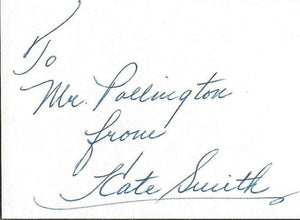 To
Mr. Pollington
from
Kate Smith